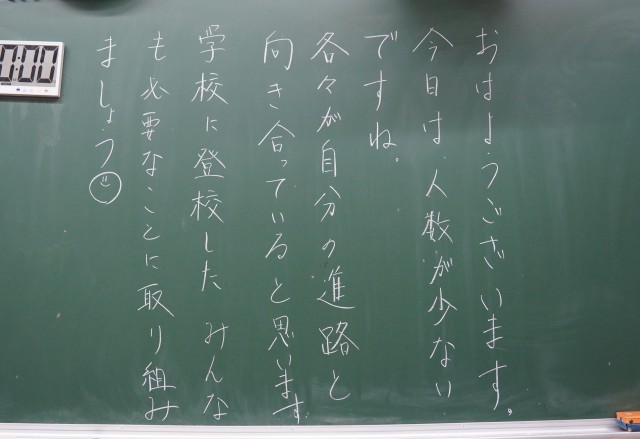 おはようございます。
今日は人数が少ない
ですね。
各々が自分の進路と
向き合っていると思います
学校に登校したみんな
も必要なことに取り組み
ましょう
0:00